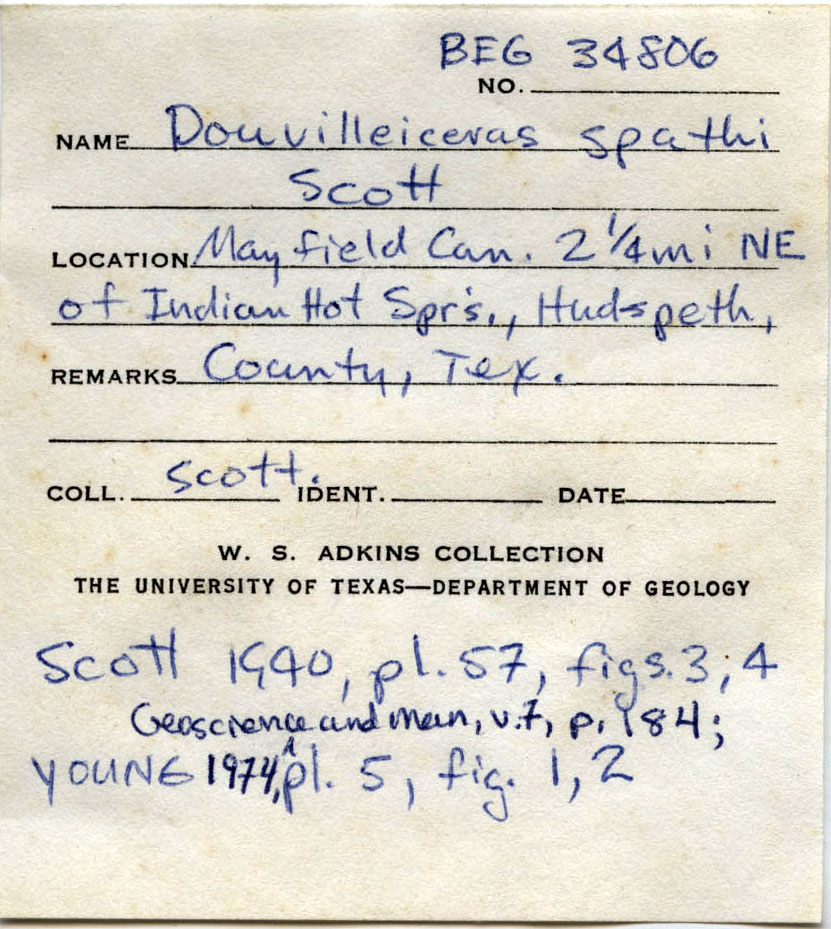 BEG 34806
NO.
NAME Douvilleiceras spathi
Scott
LOCATION Mayfield Can. 2 1/4 mi NE
of Indian Hot Spr's., Hudspeth,
REMARKS County, Tex.
COLL. Scott. IDENT. DATE
W. S. ADKINS COLLECTION
THE UNIVERSITY OF TEXAS—DEPARTMENT OF GEOLOGY
Scott 1940, pl. 57, figs. 3, 4
Geoscience and man, v.7, p. 184;
YOUNG 1974, pl. 5, fig. 1, 2